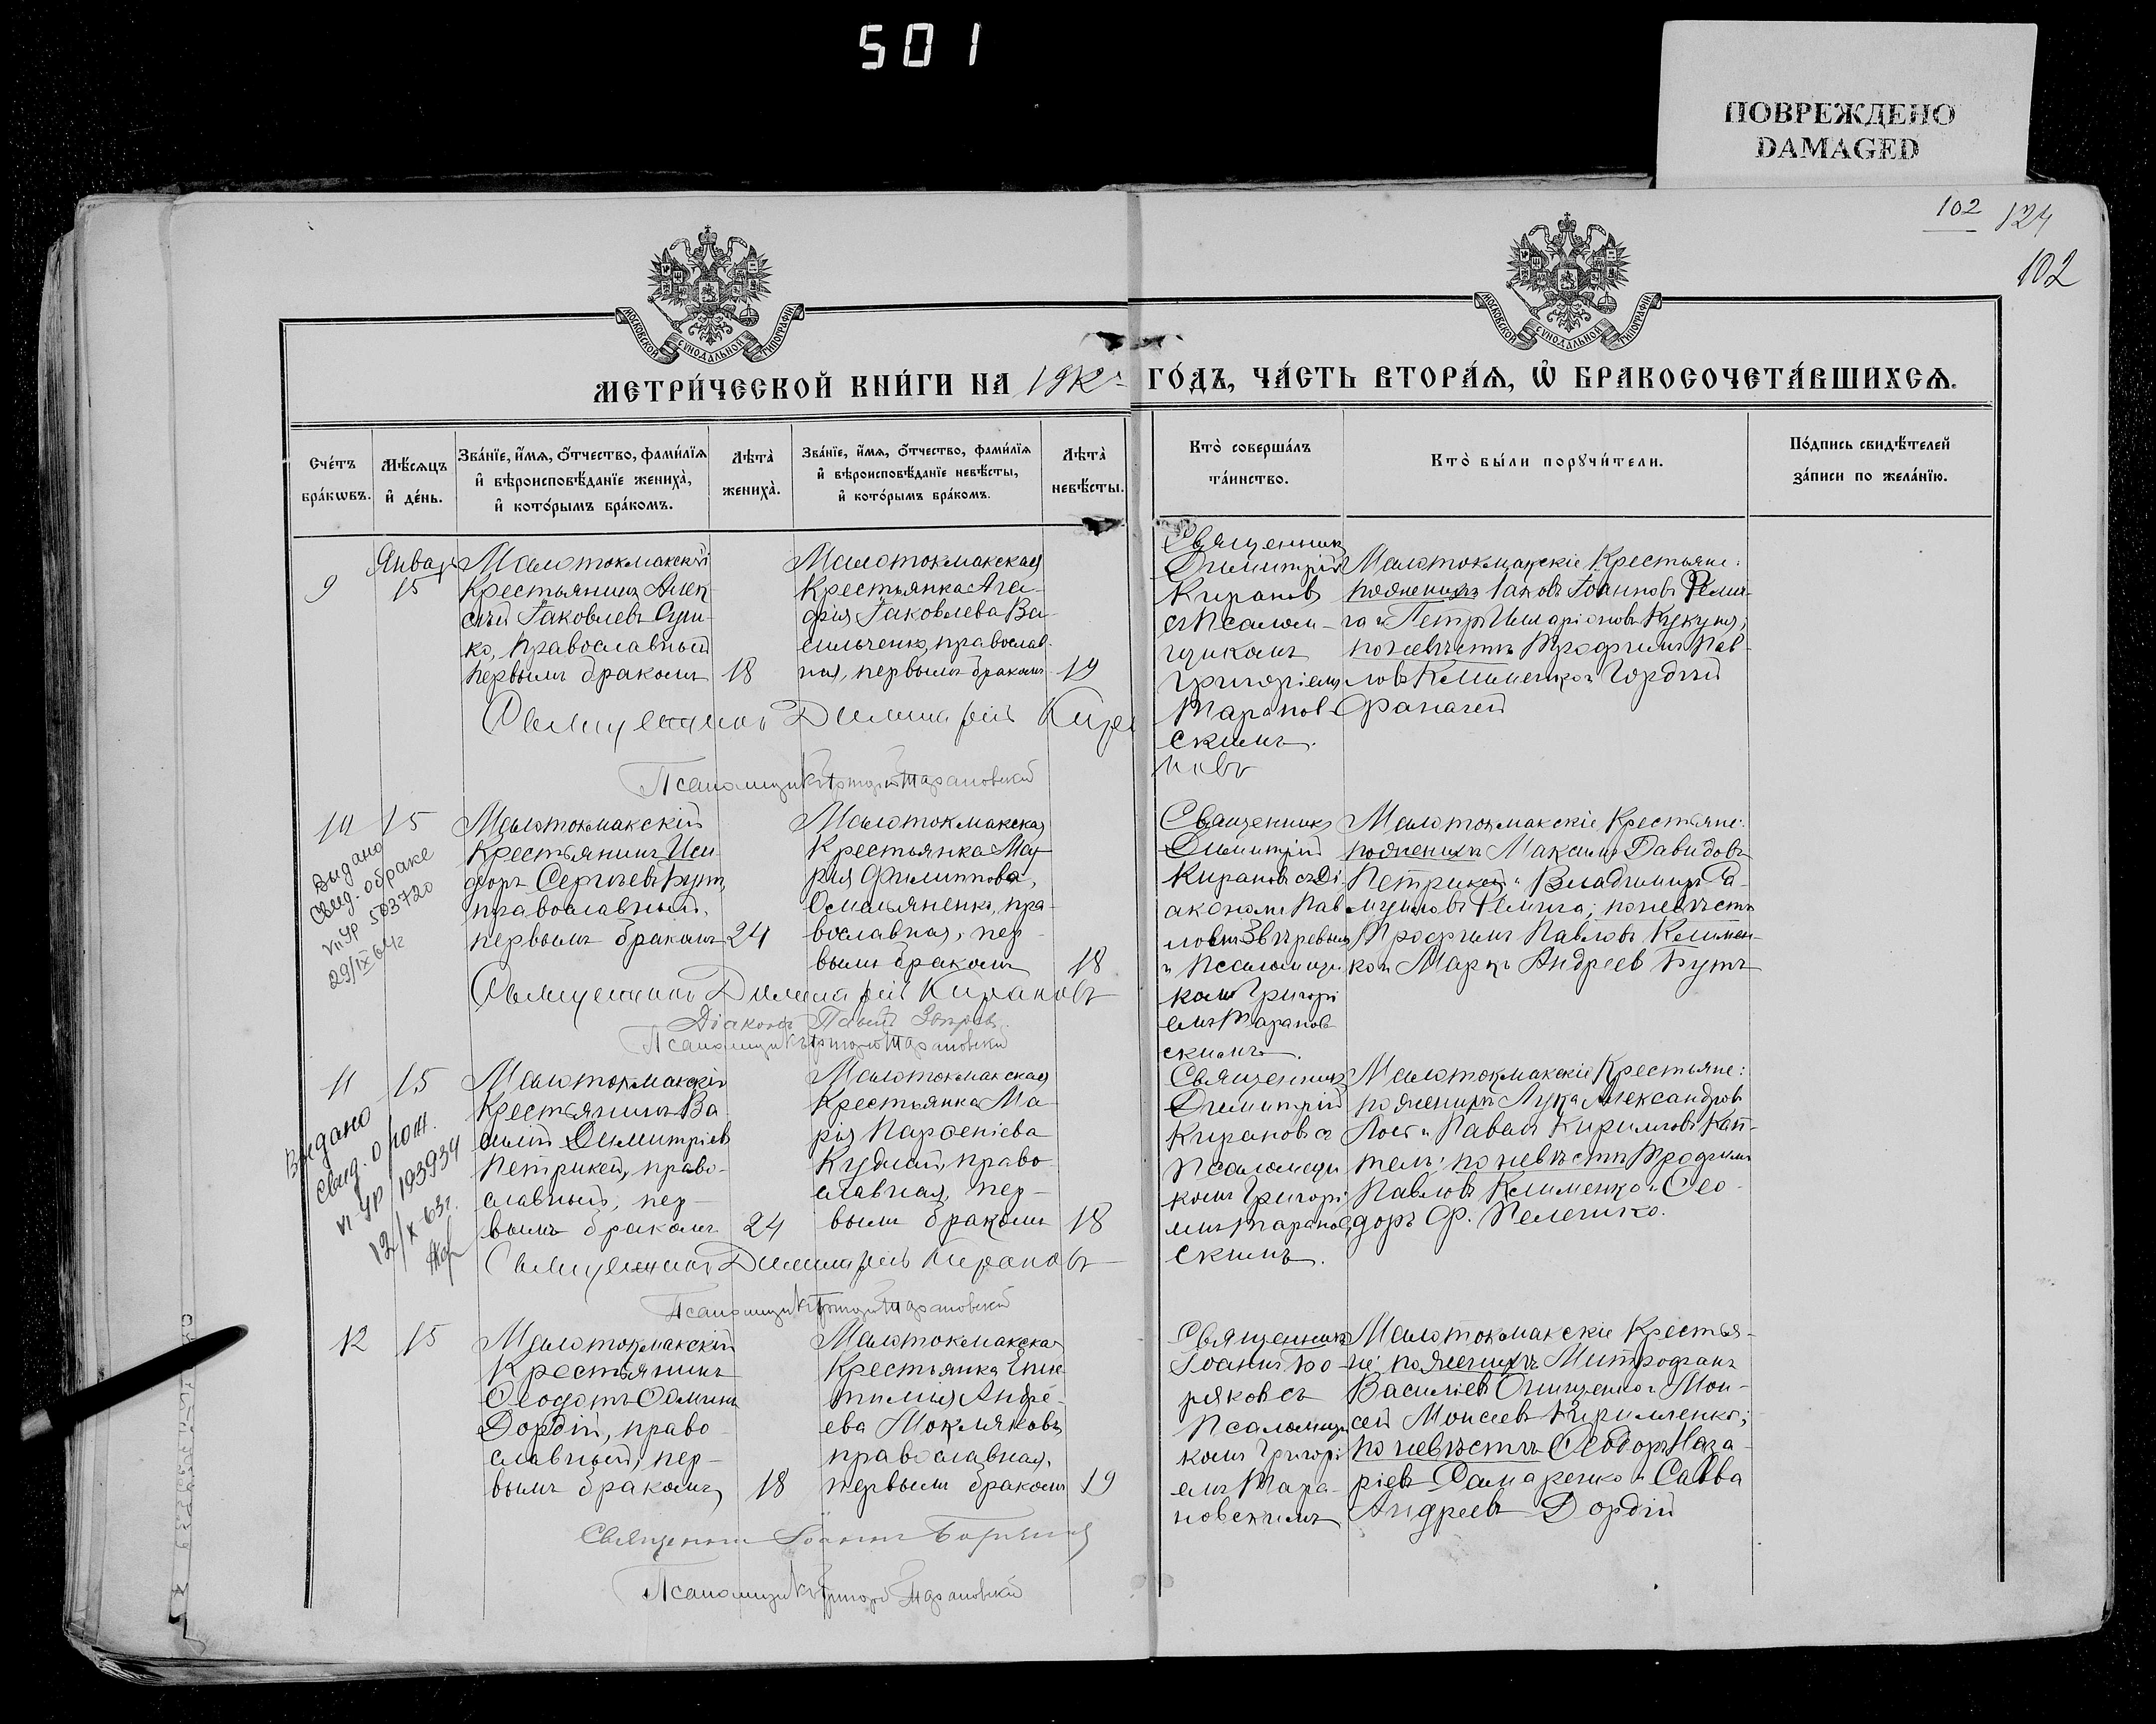 501
ПОВРЕЖДЕНО
DAMAGED
102 124
102
МОСКОВСКОЙ СѴНОДАЛЬНОЙ ТИПОГРАФІИ
МОСКОВСКОЙ СѴНОДАЛЬНОЙ ТИПОГРАФІИ
МЕТРИ́ЧЕСКОЙ КНИ́ГИ НА 1912 ГО́ДЪ, ЧА́СТЬ ВТОРА́Ѧ, Ѡ҆ БРАКОСОЧЕТА́ВШИХСѦ.
Сче́тъ бра́кѡвъ.
Мѣ́сѧцъ и҆ де́нь.
Зва́нїе, и҆́мѧ, ѻ҆́тчество, фами́лїѧ
и҆ вѣроисповѣ́данїе жениха̀,
и҆ кото́рымъ бра́комъ.
Лѣта̀ жениха̀.
Зва́нїе, и҆́мѧ, ѻ҆́тчество, фами́лїѧ
и҆ вѣроисповѣ́данїе невѣ́сты,
и҆ кото́рымъ бра́комъ.
Лѣта̀ невѣ́сты.
Кто̀ соверша́лъ
та́инство.
Кто̀ бы́ли порꙋчи́тели.
По́дпись свидѣ́телей
за́писи по жела́нїю.
9
Января
15
Малотокмакскій
Крестьянинъ Алек-
сѣй Іаковлевъ
ко, православный
первымъ бракомъ
18
Малотокмакская
Крестьянка Ага-
фія Іаковлева Ва-
сильченко, православ-
ная, первымъ бракомъ
19
Священникъ
Димитрій
Кирановъ
съ Псалом-
щикомъ
Григоріемъ
Таранов-
скимъ.
Малотокмакскіе Крестьяне:
по женихѣ Іаковъ Іоанновъ
га и Петръ Иларіоновъ
по невѣстѣ Трофимъ Пав-
ловъ Клименко и Гордѣй
Священникъ Димитрій Кира
новъ
Псаломщикъ Григорій Тарановскій
10
15
Выдано
Свид. о браке
VII УР 503720
29/IX 64г
Малотокмакскій
Крестьянинъ Иси-
доръ Сергѣевъ Бутъ
православный,
первымъ бракомъ
24
Малотокмакская
Крестьянка Ма-
рія Филиппова,
Омельяненко, пра-
вославная, пер-
вымъ бракомъ
18
Священникъ
Димитрій
Кирановъ съ Ді-
акономъ Пав-
ломъ Звѣревымъ
и Псаломщи-
комъ Григорі-
емъ Таранов-
скимъ.
Малотокмакскіе Крестьяне:
по женихѣ Максимъ Давидовъ
Петрикей и Владимиръ Са-
по невѣстѣ
Трофимъ Павловъ Климен-
ко и Маркъ Андреев Бутъ
Священникъ Димитрій Кирановъ
Діаконъ Павелъ Звѣревъ
Псаломщикъ Григорій Тарановскій
11
15
Выдано
Свид. о рож.
VI УР 193934
12/X 63г.
Малотокмакскій
Крестьянинъ Ва-
силій Димитріевъ
Петрикей, право-
славный, пер-
вымъ бракомъ
24
Малотокмакская
Крестьянка Ма-
рія Парѳеніева
право-
славная, пер-
вымъ бракомъ
18
Священникъ
Димитрій
Кирановъ съ
Псаломщи-
комъ Григорі-
емъ Таранов-
скимъ.
Малотокмакскіе Крестьяне:
по женихѣ Лука Александровъ
Лой и Павелъ Кирилловъ
по невѣстѣ Трофимъ
Павловъ Клименко и Ѳео-
доръ
Священникъ Димитрій Кирановъ
Псаломщикъ Григорій Тарановскій
12
15
Малотокмакскій
Крестьянинъ
Ѳеодотъ Ѳоминъ
Дордій, право-
славный, пер-
вымъ бракомъ
18
Малотокмакская
Крестьянка
Андре-
ева Мокляковъ
православная,
первымъ бракомъ
19
Священникъ
Іоаннъ Бо-
ряковъ съ
Псаломщи-
комъ Григорі-
емъ Тара-
новскимъ
Малотокмакскіе Крестья-
не: по женихѣ Митрофанъ
Василіевъ Онищенко и Мои-
сей Моисеевъ Кириленко;
по невѣстѣ Ѳеодоръ Наза-
ріевъ и Савва
Андреевъ Дордій
Священникъ Іоаннъ Боряковъ
Псаломщикъ Григорій Тарановскій